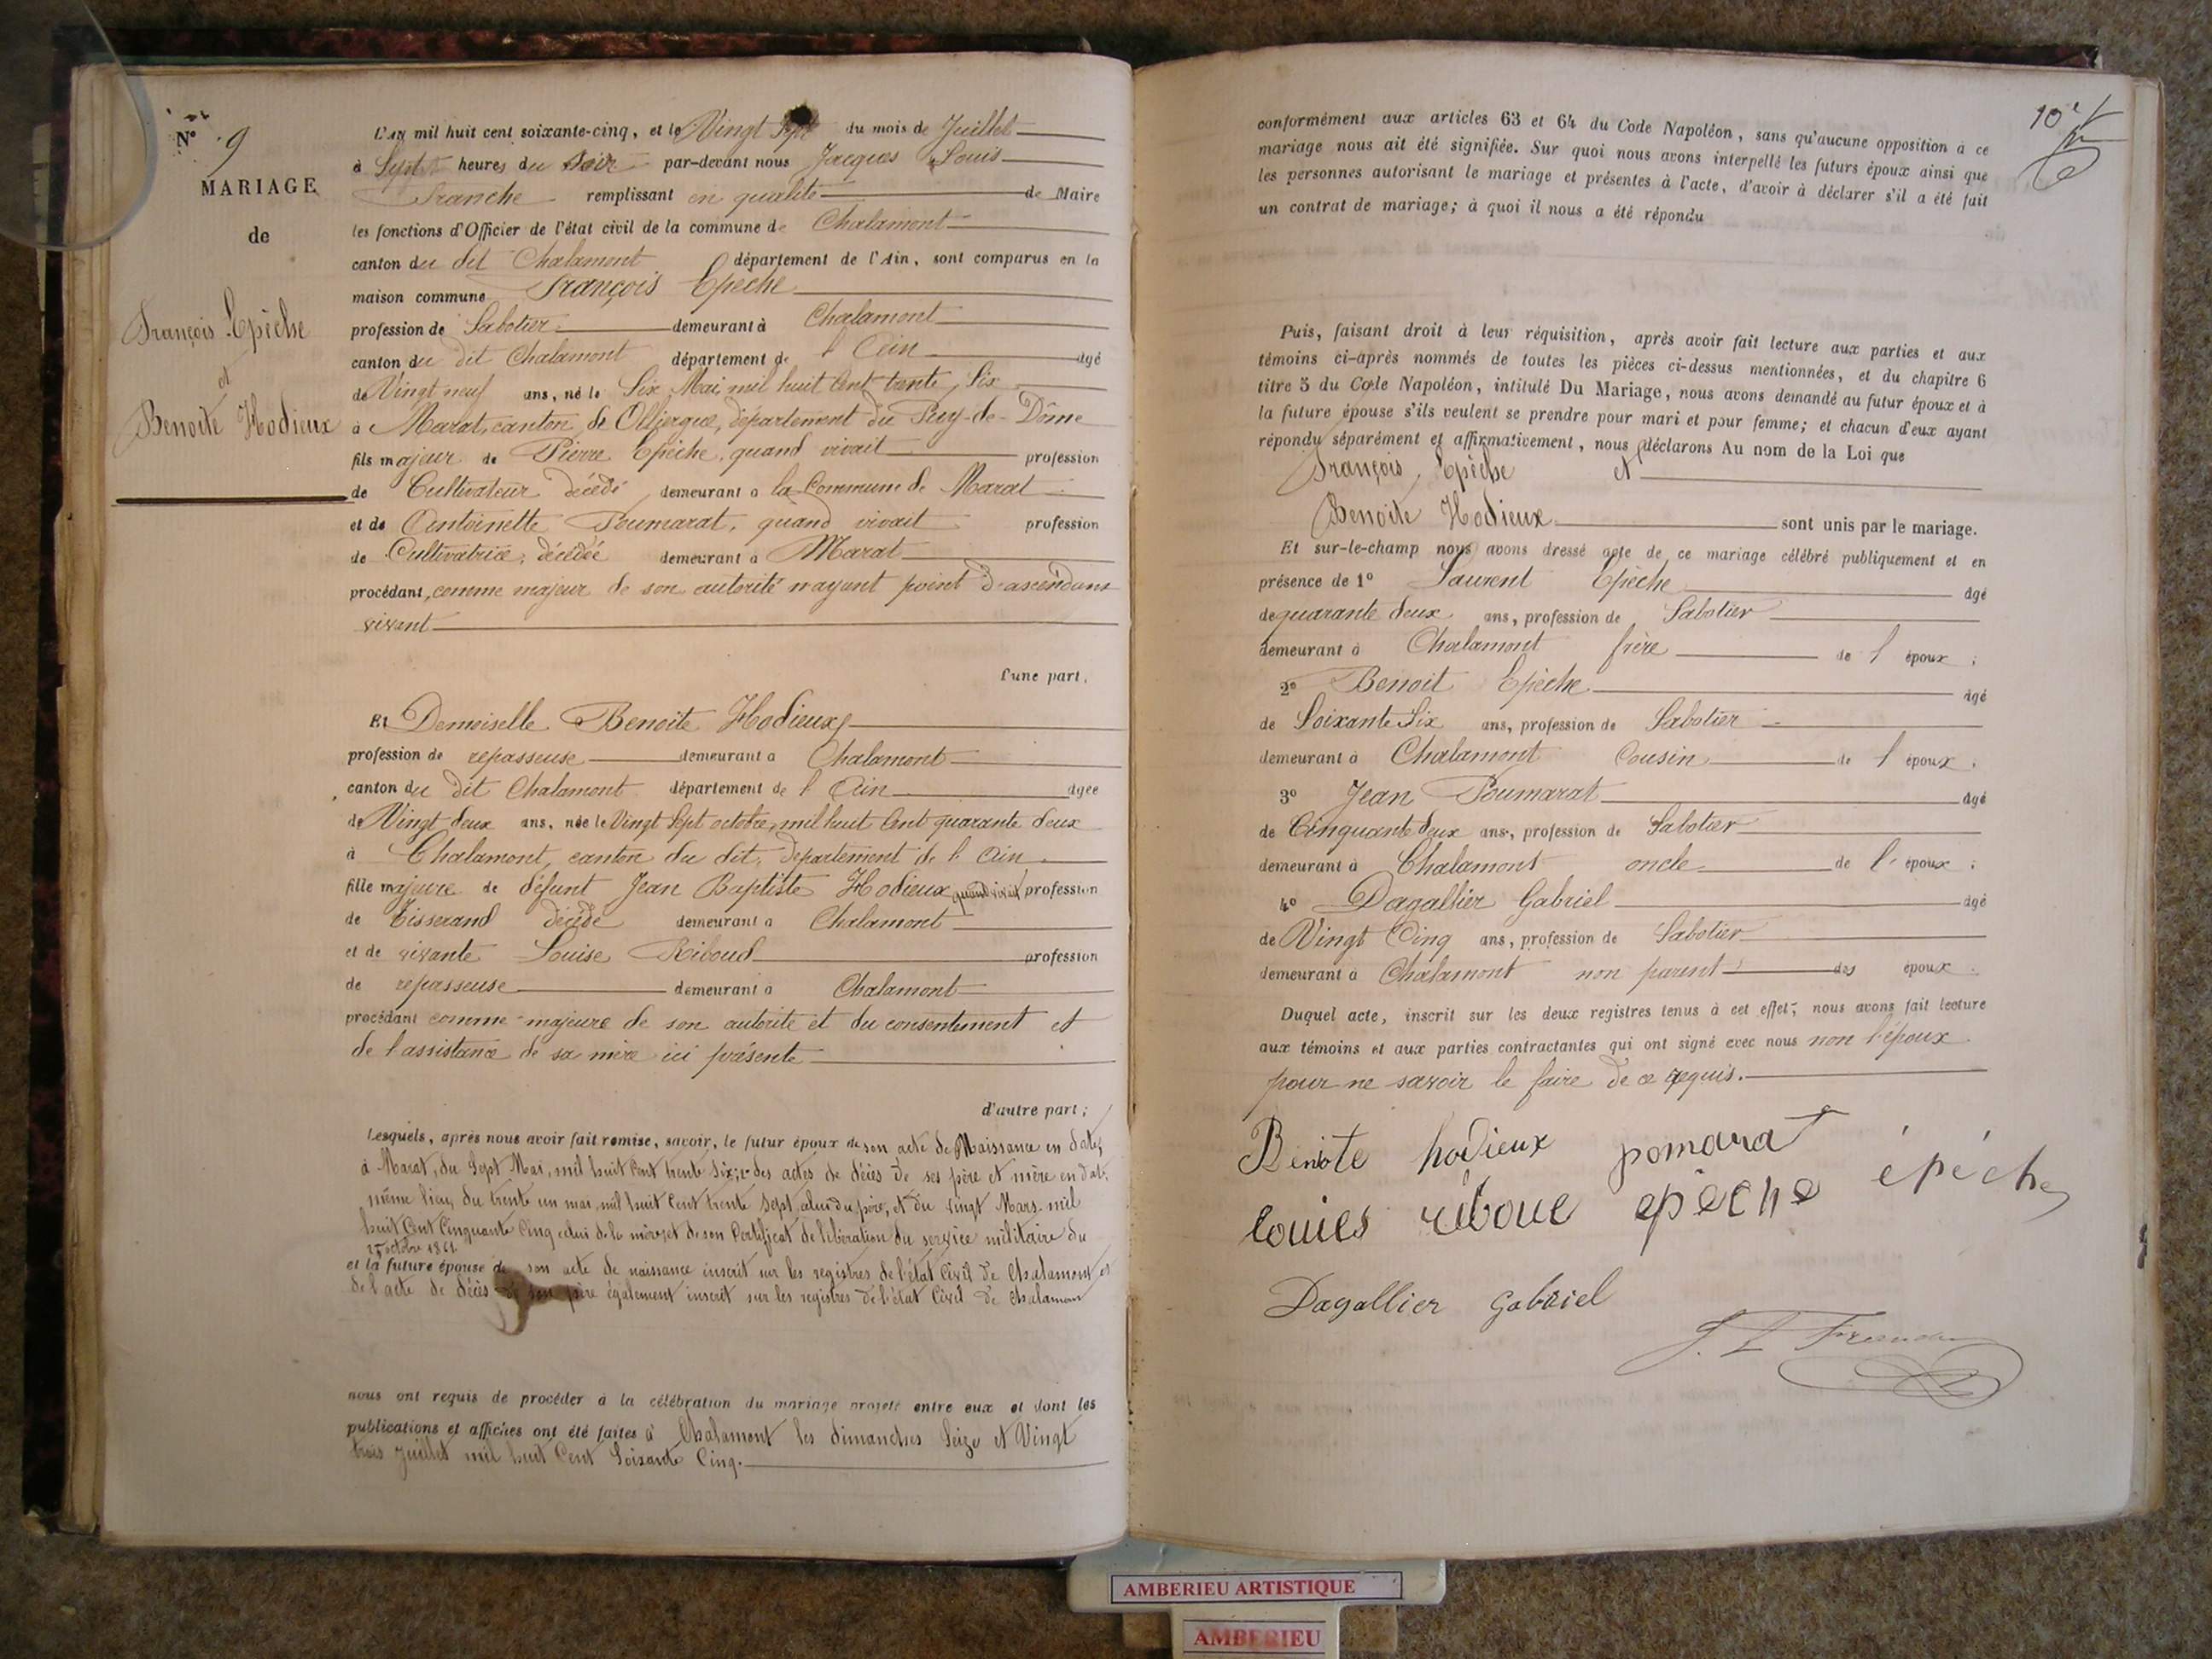 N° 9
MARIAGE
de
François Epèche
et
Benoite Hodieux
L'an mil huit cent soixante-cinq, et le Vingt Sept du mois de Juillet
à Sept heures du Soir par-devant nous Jacques Louis
Franche remplissant en qualité de Maire
les fonctions d'Officier de l'état civil de la commune de Chalamont
canton du dit Chalamont département de l'Ain, sont comparus en la
maison commune François Epèche
profession de Sabotier demeurant à Chalamont
canton du dit Chalamont département de l'Ain âgé
de Vingt neuf ans, né le Six Mai mil huit Cent trente Six
à Marat, canton de Olliergue, département du Puy-de-Dôme
fils majeur de Pierre Epèche, quand vivait profession
de Cultivateur décédé demeurant à la Commune de Marat
et de Antoinette Poumarat, quand vivait profession
de Cultivatrice, décédée demeurant à Marat
procédant, comme majeur de son autorité n'ayant point d'ascendans
vivant
l'une part,
Et Demoiselle Benoite Hodieux
profession de repasseuse demeurant à Chalamont
canton du dit Chalamont département de l'Ain âgée
de Vingt deux ans, née le Vingt Sept octobre, mil huit Cent quarante deux
à Chalamont, canton du dit, département de l'Ain
fille majeure de défunt Jean Baptiste Hodieux quand vivait profession
de Tisserand décédé demeurant à Chalamont
et de vivante Louise Riboud profession
de repasseuse demeurant à Chalamont
procédant comme majeure de son autorité et du consentement et
de l'assistance de sa mère ici présente
d'autre part;
Lesquels, après nous avoir fait remise, savoir, le futur époux de son acte de Naissance en date,
à Marat, du Sept Mai, mil huit Cent trente Six; des actes de décès de ses père et mère en date
même lieu, du trente un mai mil huit Cent trente Sept, celui du père, et du vingt Mars mil
huit Cent Cinquante Cinq celui de la mère et de son Certificat de libération du service militaire du
25 octobre 1861
et la future épouse de son acte de naissance inscrit sur les registres de l'état Civil de Chalamont et
de l'acte de décès de son père également inscrit sur les registres de l'état Civil de Chalamont
nous ont requis de procéder à la célébration du mariage projeté entre eux et dont les
publications et affiches ont été faites à Chalamont les dimanches Seize et Vingt
trois Juillet mil huit Cent Soixante Cinq.
10
conformément aux articles 63 et 64 du Code Napoléon, sans qu'aucune opposition à ce
mariage nous ait été signifiée. Sur quoi nous avons interpellé les futurs époux ainsi que
les personnes autorisant le mariage et présentes à l'acte, d'avoir à déclarer s'il a été fait
un contrat de mariage; à quoi il nous a été répondu
Puis, faisant droit à leur réquisition, après avoir fait lecture aux parties et aux
témoins ci-après nommés de toutes les pièces ci-dessus mentionnées, et du chapitre 6
titre 5 du Code Napoléon, intitulé Du Mariage, nous avons demandé au futur époux et à
la future épouse s'ils veulent se prendre pour mari et pour femme; et chacun d'eux ayant
répondu séparément et affirmativement, nous déclarons Au nom de la Loi que
François Epèche et
Benoite Hodieux sont unis par le mariage.
Et sur-le-champ nous avons dressé acte de ce mariage célébré publiquement et en
présence de 1° Laurent Epèche âgé
de quarante deux ans, profession de Sabotier
demeurant à Chalamont frère de l'époux;
2° Benoit Epèche âgé
de Soixante Six ans, profession de Sabotier
demeurant à Chalamont Cousin de l'époux;
3° Jean Poumarat âgé
de Cinquante deux ans, profession de Sabotier
demeurant à Chalamont oncle de l'époux;
4° Dagallier Gabriel âgé
de Vingt Cinq ans, profession de Sabotier
demeurant à Chalamont non parent des époux.
Duquel acte, inscrit sur les deux registres tenus à cet effet, nous avons fait lecture
aux témoins et aux parties contractantes qui ont signé avec nous non l'époux
pour ne savoir le faire de ce requis.
Benoite hodieux pomarat
louies riboue epèche épéche
Dagallier Gabriel
J. L.
AMBERIEU ARTISTIQUE
AMBERIEU